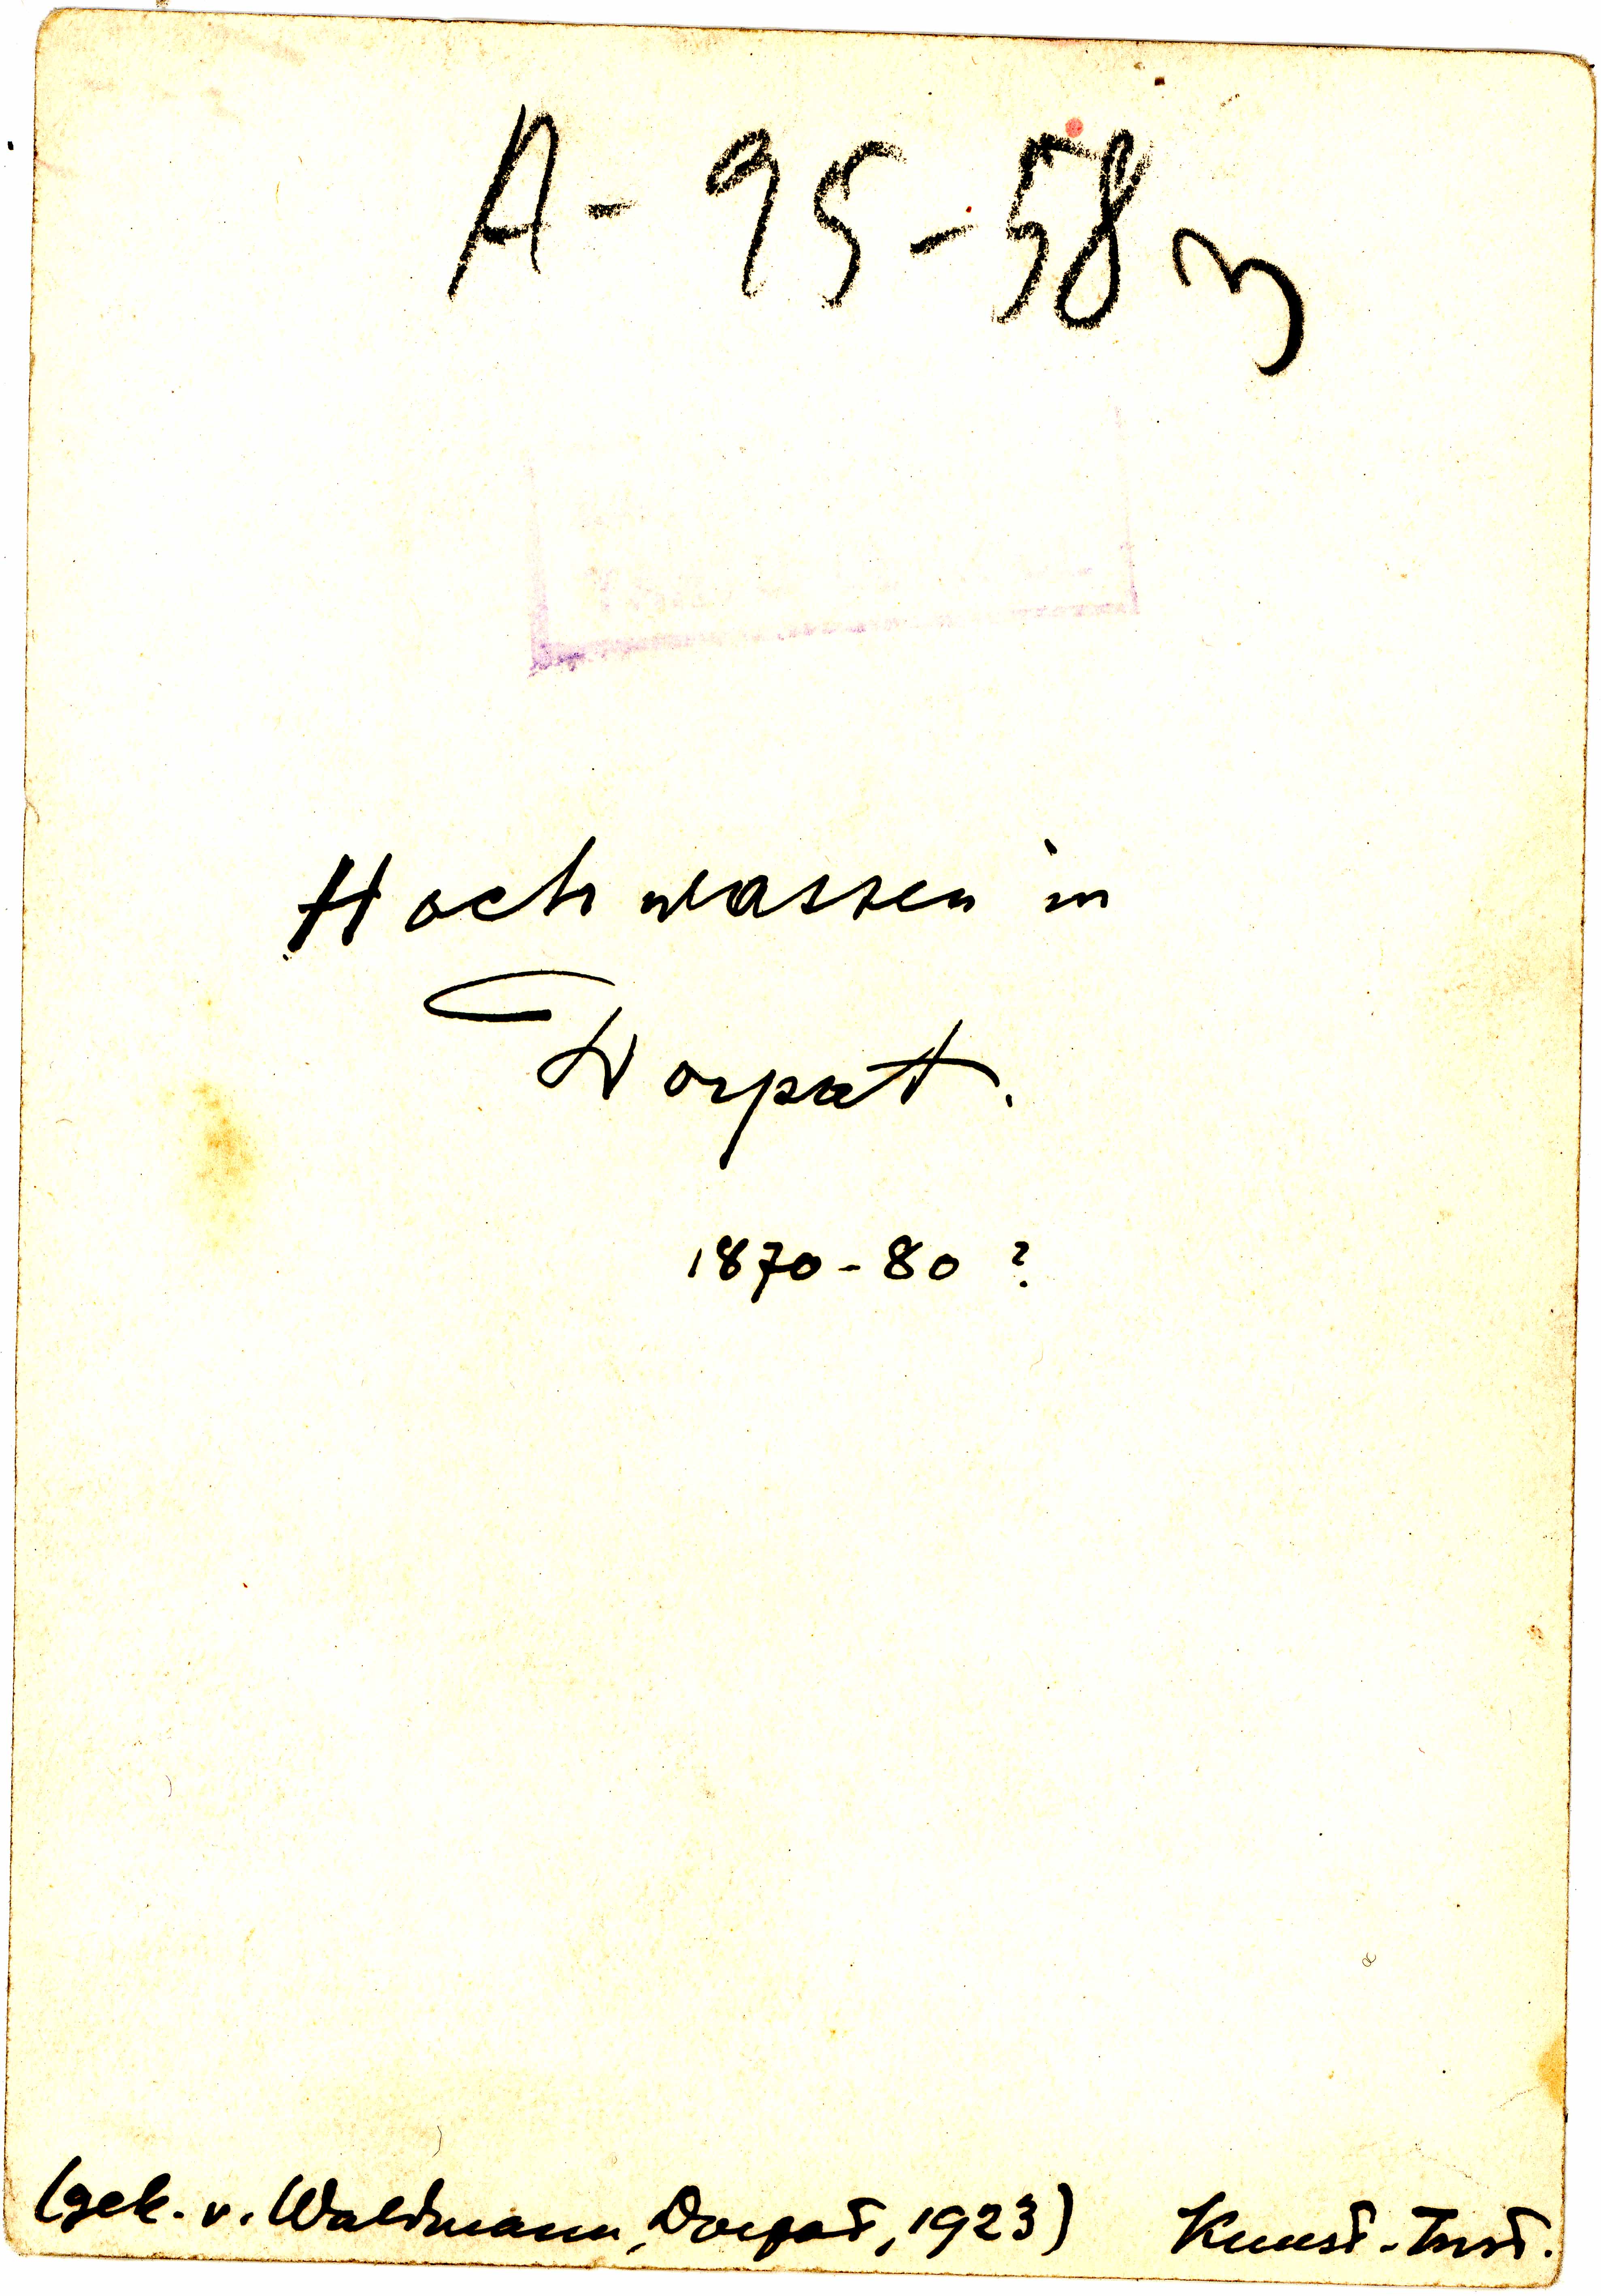 A-95-58
Hochwasser in
Dorpat.
1870-80 ?
(gek. v. Waldmann, Dorpat, 1923) Kunst-Inst.